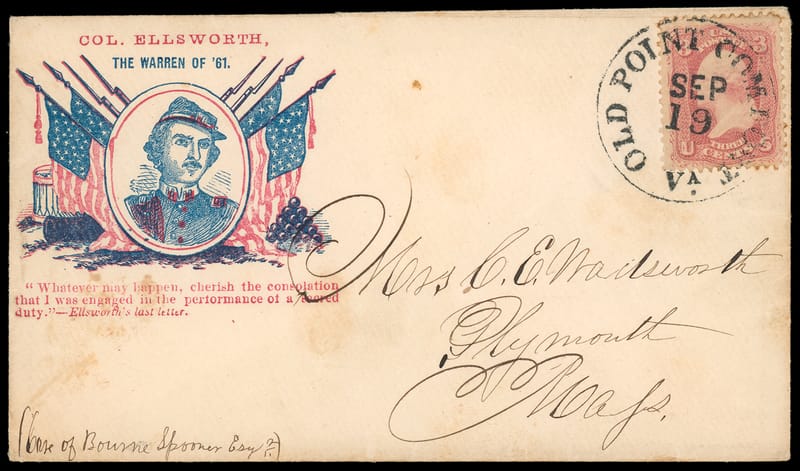 COL. ELLSWORTH,
THE WARREN OF '61.
"Whatever may happen, cherish the consolation
that I was engaged in the performance of a sacred
duty."—Ellsworth's last letter.
OLD POINT COMFORT
SEP
19
VA.
U S
THREE
CENTS
Mrs C. E. Wadsworth
Plymouth
Mass.
(Care of Bourne Spooner Esqr)